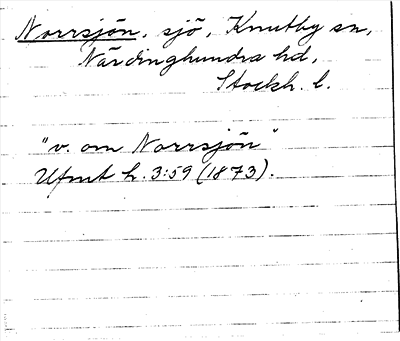 Norrsjön, sjö, Knutby sn,
Närdinghundra hd,
Stockh. l.
"v. om Norrsjön"
Ufmt h. 3:59 (1873).